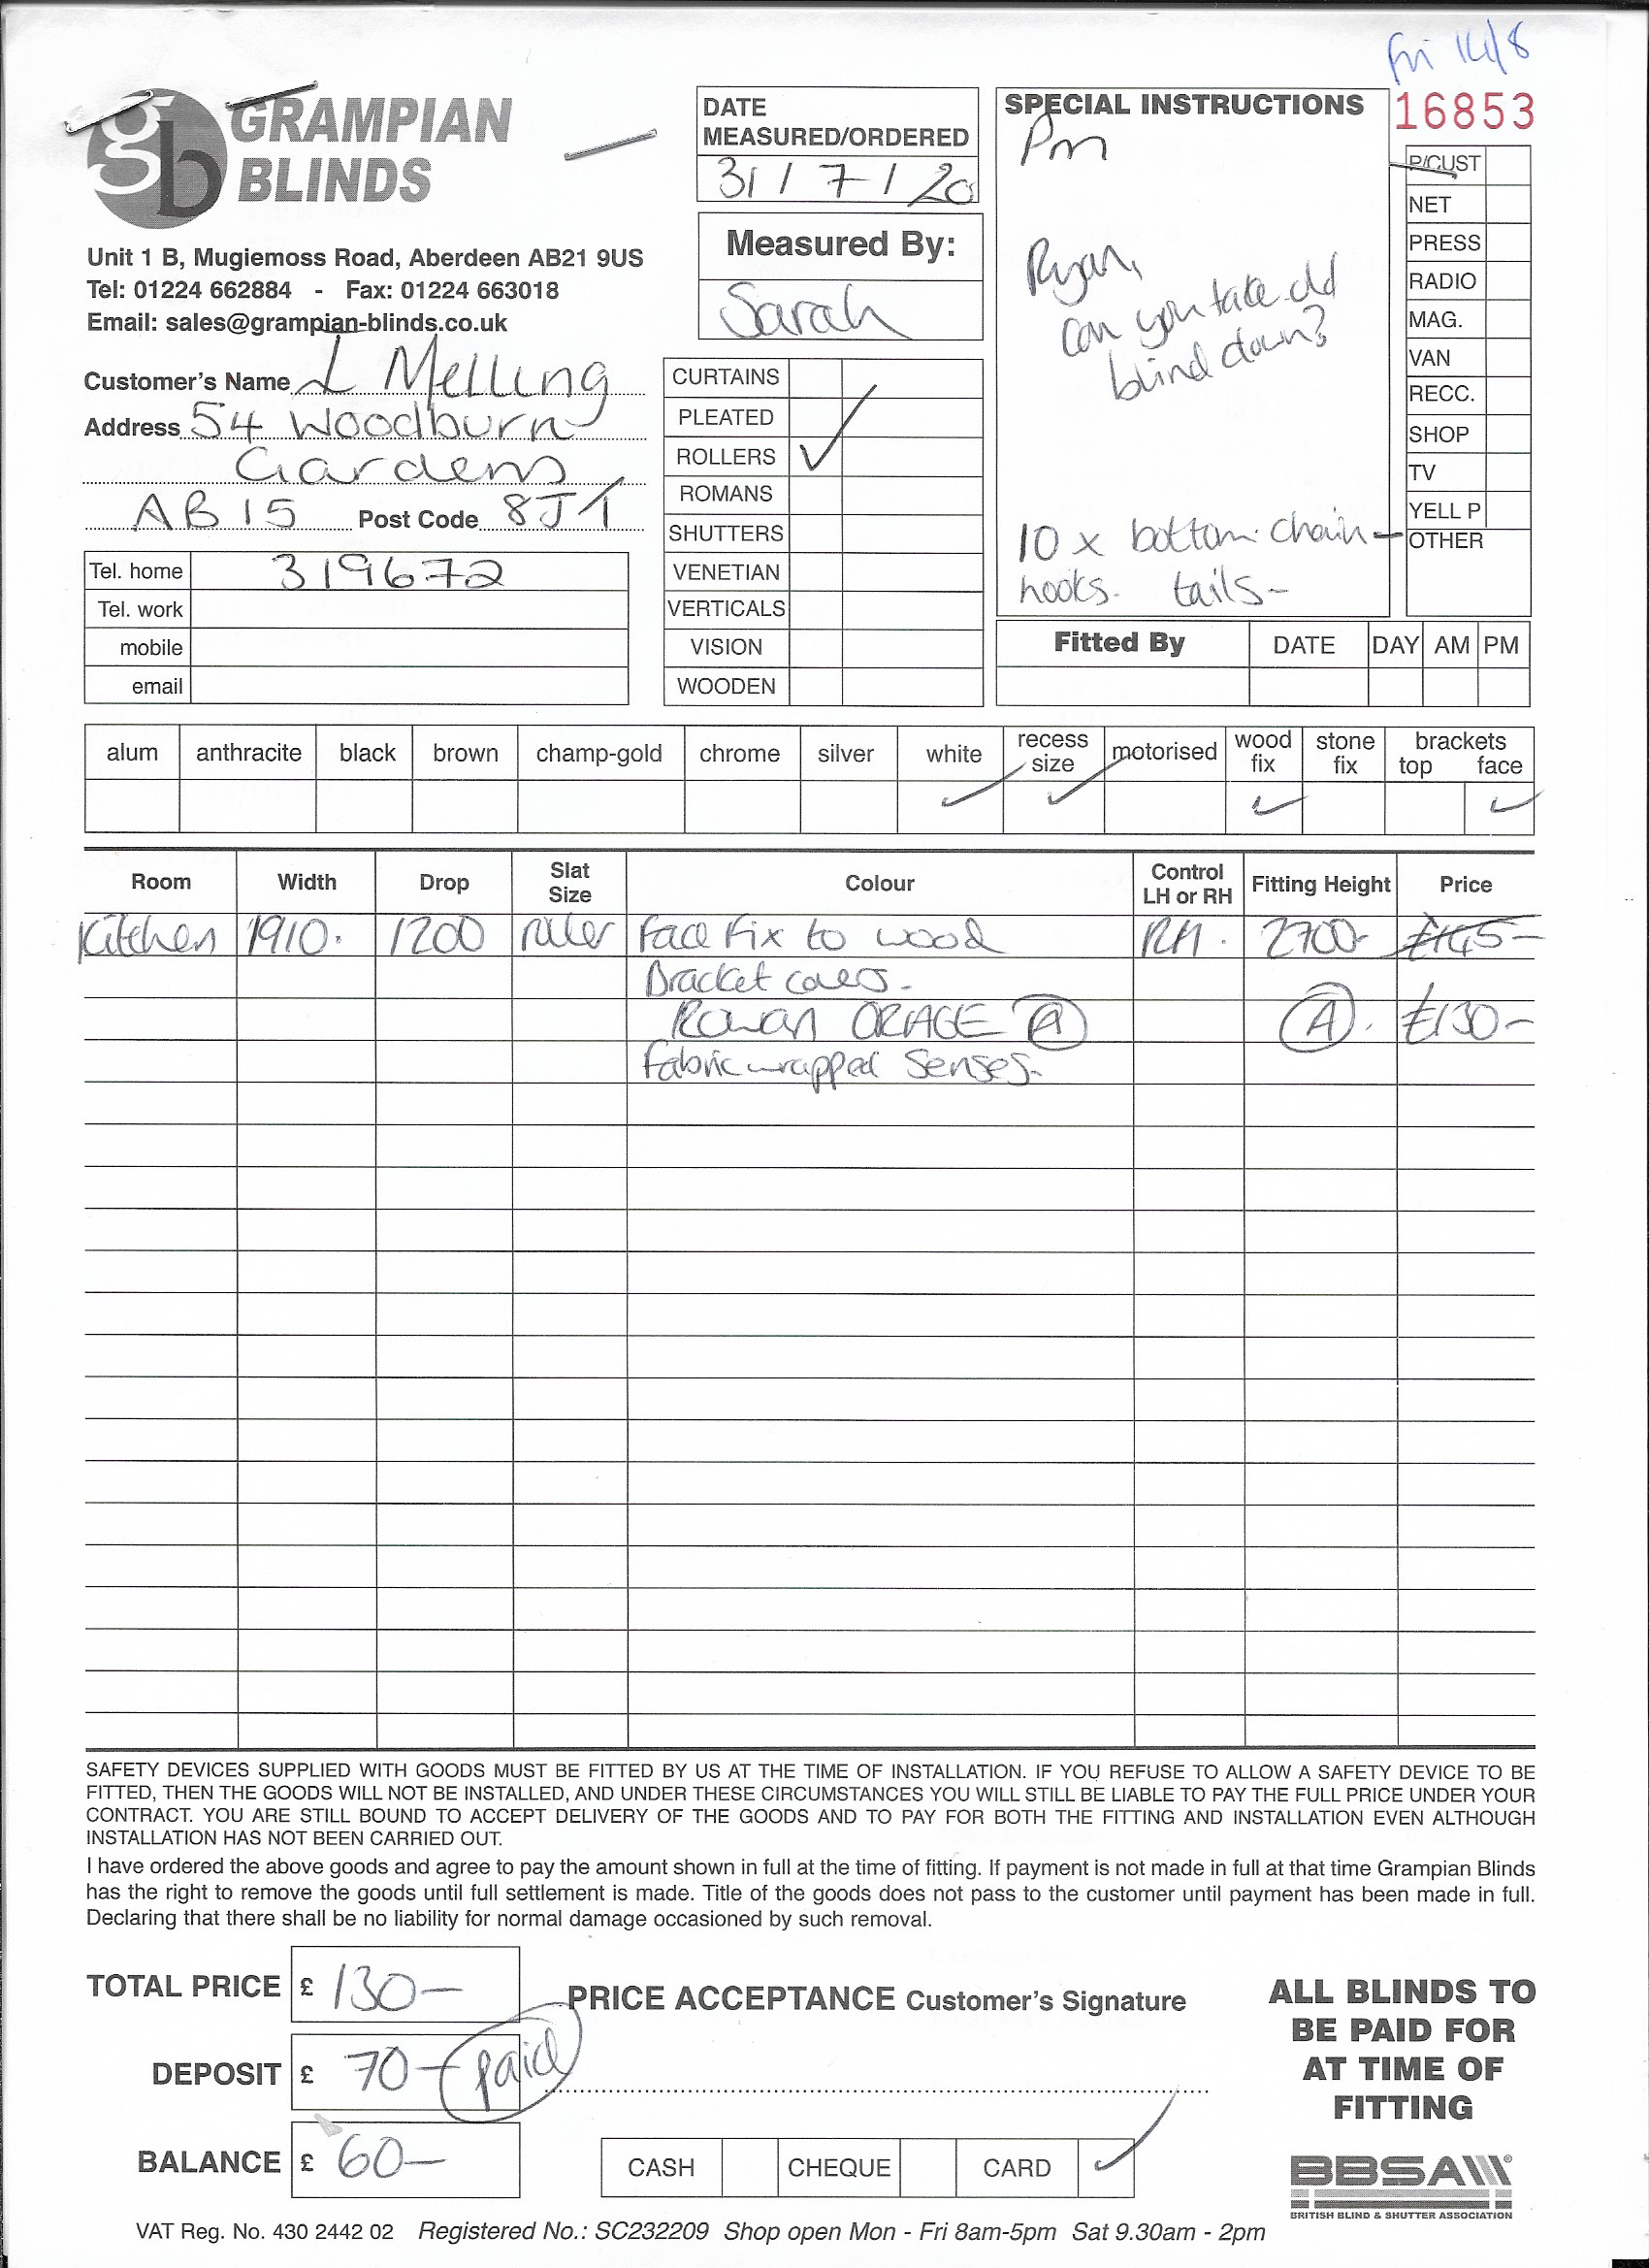 Fri 14/8
GRAMPIAN
BLINDS
Unit 1 B, Mugiemoss Road, Aberdeen AB21 9US
Tel: 01224 662884 - Fax: 01224 663018
Email: sales@grampian-blinds.co.uk
DATE
MEASURED/ORDERED
31 / 7 / 20
Measured By:
Sarah
SPECIAL INSTRUCTIONS
Pm
Ryan,
Can you take old
blind down?
10 x bottom chain -
hooks. tails -
16853
P/CUST
NET
PRESS
RADIO
MAG.
VAN
RECC.
SHOP
TV
YELL P
OTHER
Customer's Name L Melling
Address 54 Woodburn
Gardens
AB15 Post Code 8JT
Tel. home 319672
Tel. work
mobile
email
CURTAINS
PLEATED
ROLLERS ✓
ROMANS
SHUTTERS
VENETIAN
VERTICALS
VISION
WOODEN
Fitted By DATE DAY AM PM
alum anthracite black brown champ-gold chrome silver white recess size motorised wood fix stone fix brackets top face
✓ ✓ ✓ ✓
Room Width Drop Slat Size Colour Control LH or RH Fitting Height Price
Kitchen 1910. 1200 roller Face Fix to wood RH. 2700- £145-
Bracket covers.
Rowan ORAGE A A. £130-
Fabric wrapped Senses.
SAFETY DEVICES SUPPLIED WITH GOODS MUST BE FITTED BY US AT THE TIME OF INSTALLATION. IF YOU REFUSE TO ALLOW A SAFETY DEVICE TO BE
FITTED, THEN THE GOODS WILL NOT BE INSTALLED, AND UNDER THESE CIRCUMSTANCES YOU WILL STILL BE LIABLE TO PAY THE FULL PRICE UNDER YOUR
CONTRACT. YOU ARE STILL BOUND TO ACCEPT DELIVERY OF THE GOODS AND TO PAY FOR BOTH THE FITTING AND INSTALLATION EVEN ALTHOUGH
INSTALLATION HAS NOT BEEN CARRIED OUT.
I have ordered the above goods and agree to pay the amount shown in full at the time of fitting. If payment is not made in full at that time Grampian Blinds
has the right to remove the goods until full settlement is made. Title of the goods does not pass to the customer until payment has been made in full.
Declaring that there shall be no liability for normal damage occasioned by such removal.
TOTAL PRICE £ 130-
DEPOSIT £ 70- paid
BALANCE £ 60-
PRICE ACCEPTANCE Customer's Signature
CASH CHEQUE CARD ✓
ALL BLINDS TO
BE PAID FOR
AT TIME OF
FITTING
BBSA
BRITISH BLIND & SHUTTER ASSOCIATION
VAT Reg. No. 430 2442 02 Registered No.: SC232209 Shop open Mon - Fri 8am-5pm Sat 9.30am - 2pm